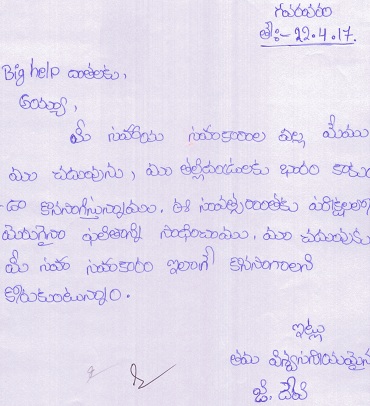 గవరవరం
తే:- 22.4.17.
Big help దాతలకు,
అయ్యా,
మీ సహాయ సహకారాల వల్ల మేము
మా చదువును, మా తల్లిదండ్రులకు భారం కాకుం
-డా కొనసాగిస్తున్నాము. ఈ సంవత్సరాంతకు పరీక్షలలో
మెరుగైన ఫలితాన్ని సాధించాము. మా చదువుకు
మీ సహాయ సహకారం ఇలాగే కొనసాగాలని
కోరుకుంటున్నాం.
ఇట్లు
తమ విశ్వసనీయమైన
జె. దేవి